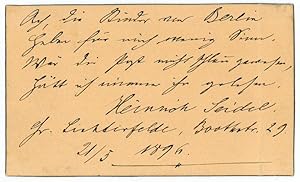 Ach, die Kinder von Berlin
Haben für mich wenig Sinn.
Wär die Post nicht schlau gewesen,
Hätt ich immer ihr gelesen.
Heinrich Seidel.
Gr. Lichterfelde, Boothstr. 29
21/5 1896.